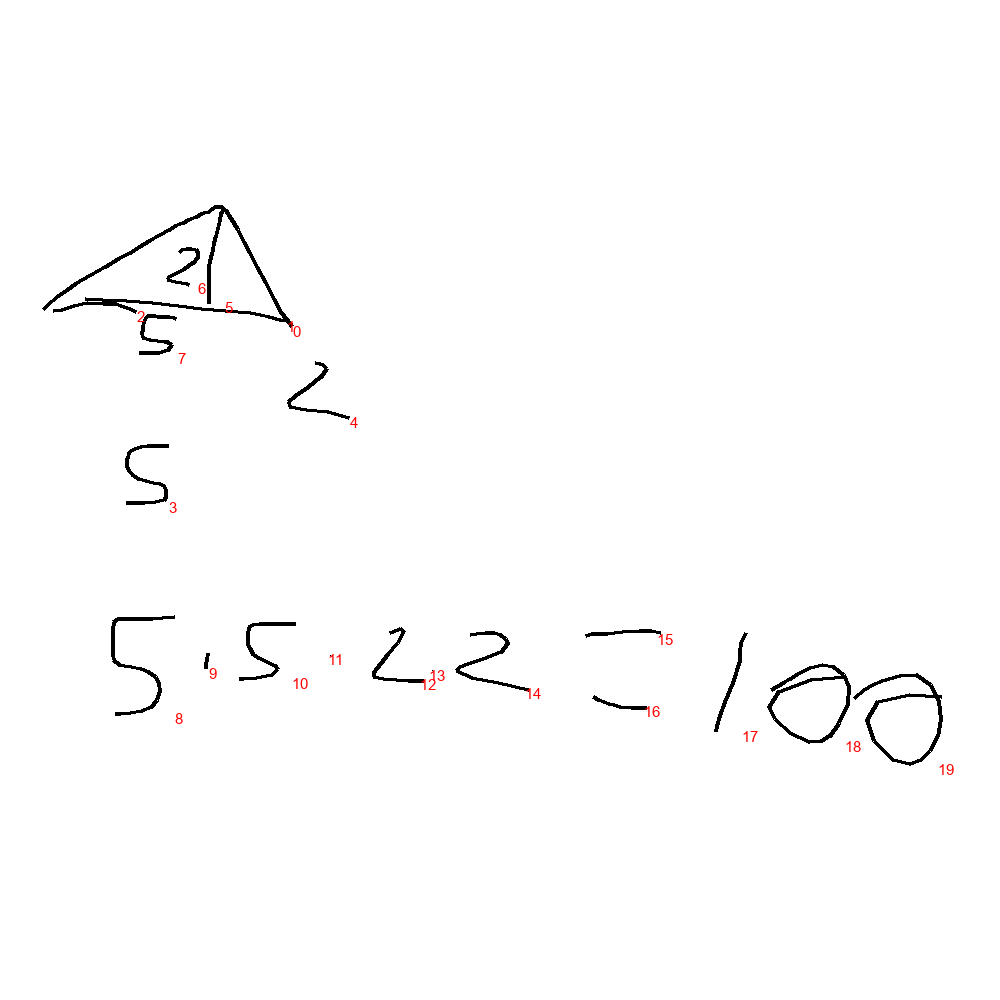 2
6
2 5 0
5 7
2 4
5 3
5 · 5 · 2 · 2 = 100
8 9 10 11 12 13 14 15 16 17 18 19